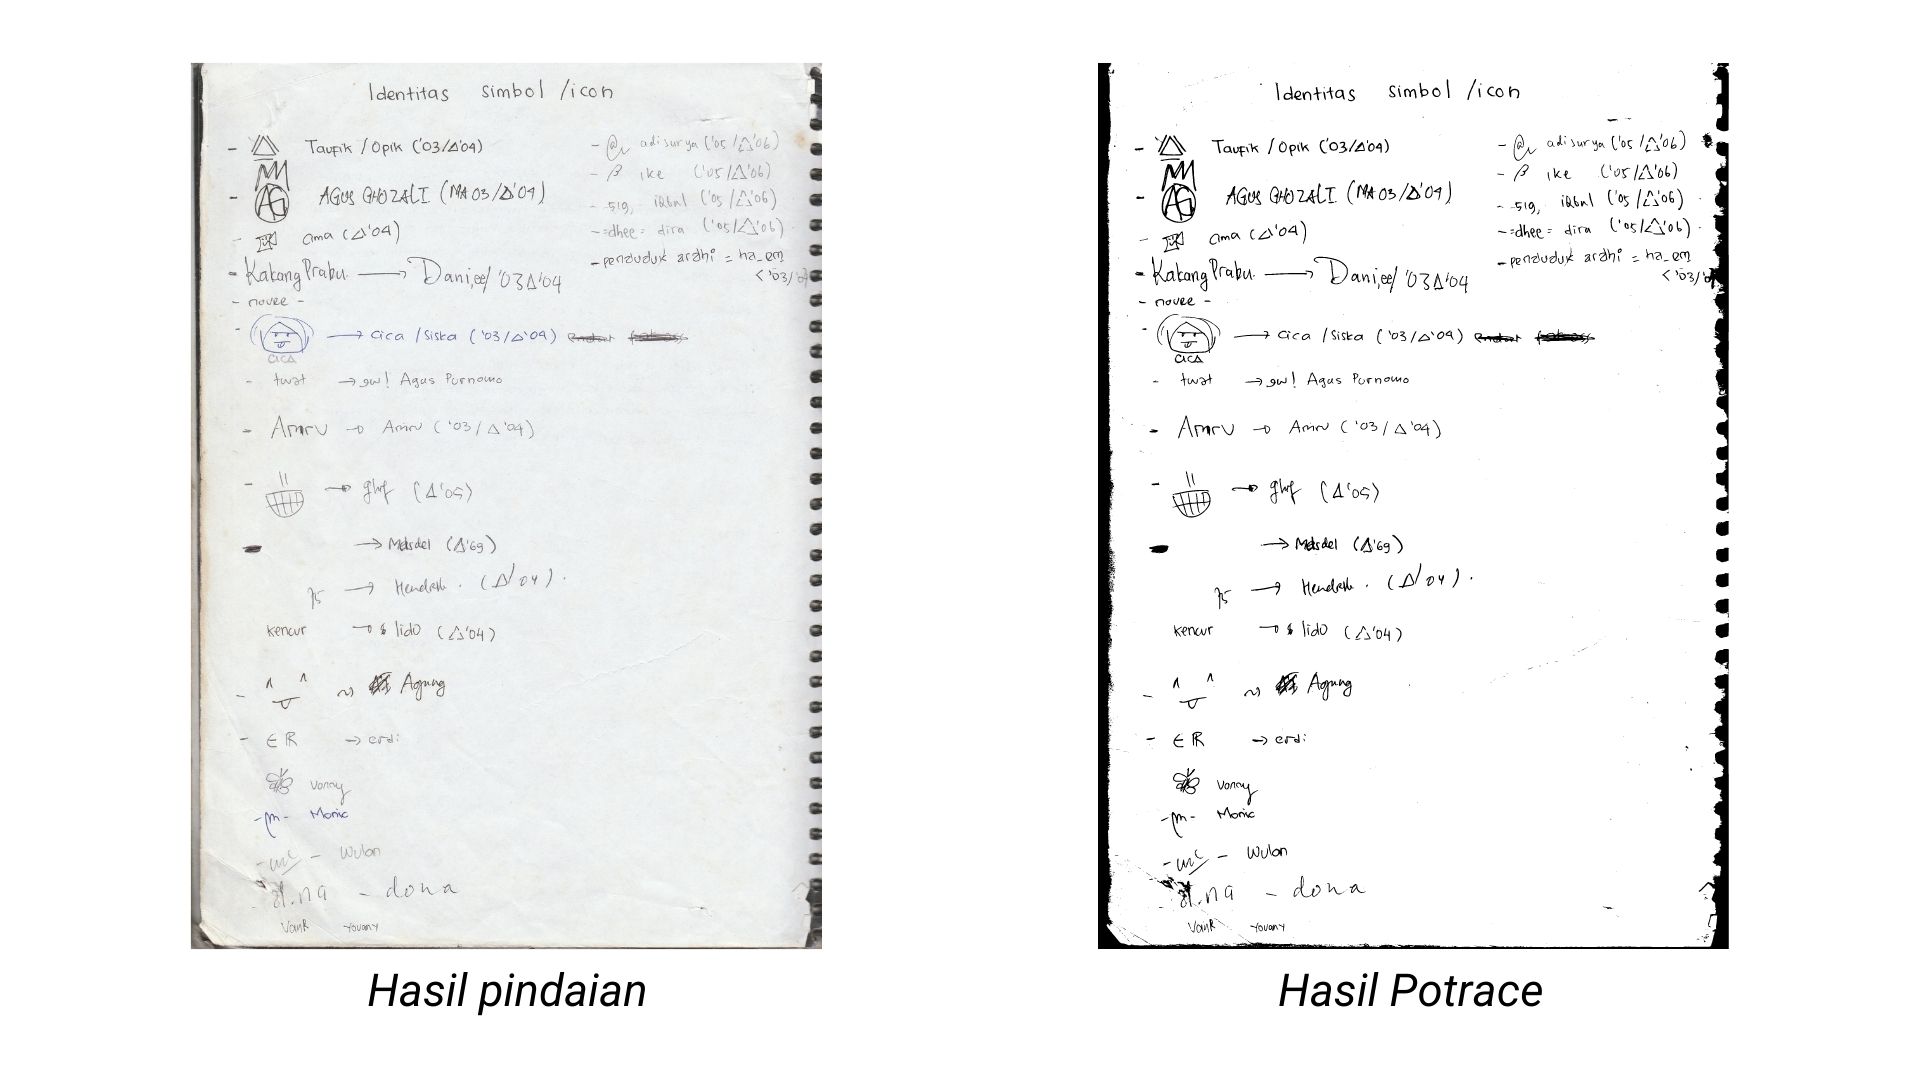 Identitas simbol /icon
- Taufik / Opik ('03/Δ'04)
- AGUS GHOZALI (MA 03/Δ'04)
- ama (Δ'04)
- Kakang Prabu. → Daniee/ '03Δ'04
- novee -
- CICA → cica /Siska ('03/Δ'04)
- twat → gw! Agus Purnomo
- Amru → Amru ('03/Δ'04)
- → ghf (Δ'05)
- → Masdel (Δ'69)
→ Hendrik. (Δ'04).
kencur → lido (Δ'04)
- ^ ^ ~> Agung
- ∈ R → erdi
Vonny
-m- Monic
- Wulan
- dona
VanR Youany
- @ adisurya ('05/Δ'06)
- β ike ('05/Δ'06)
- 519, iQbal ('05/Δ'06)
- =dhee= dira ('05/Δ'06)
- penduduk ardhi = ha_em
<'03/'04
Identitas simbol /icon
- Taufik / Opik ('03/Δ'04)
- AGUS GHOZALI (MA 03/Δ'04)
- ama (Δ'04)
- Kakang Prabu. → Daniee/ '03Δ'04
- novee -
- CICA → cica /Siska ('03/Δ'04)
- twat → gw! Agus Purnomo
- Amru → Amru ('03/Δ'04)
- → ghf (Δ'05)
- → Masdel (Δ'69)
→ Hendrik. (Δ'04).
kencur → lido (Δ'04)
- ^ ^ ~> Agung
- ∈ R → erdi
Vonny
-m- Monic
- Wulan
- dona
VanR Youany
- @ adisurya ('05/Δ'06)
- β ike ('05/Δ'06)
- 519, iQbal ('05/Δ'06)
- =dhee= dira ('05/Δ'06)
- penduduk ardhi = ha_em
<'03/'04
Hasil pindaian
Hasil Potrace